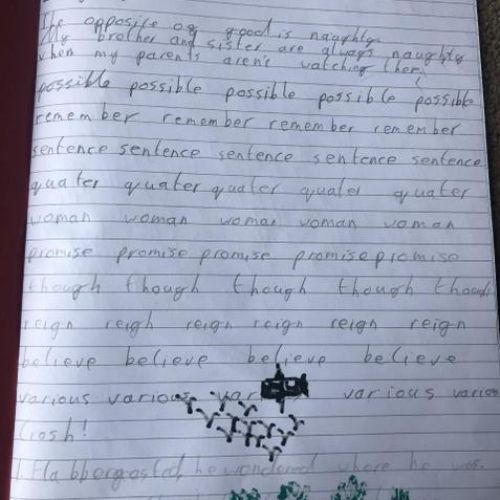 The opposite of good is naughty.
My brother and sister are always naughty
when my parents aren't watching them.
possible possible possible possible possible
remember remember remember remember
sentence sentence sentence sentence sentence
quater quater quater quater quater
woman woman woman woman woman
promise promise promise promise promise
though though though though though
reign reigh reign reign reign reign
believe believe believe believe
various various various various
Gosh!
1. Flabbergasted, he wondered where he was.